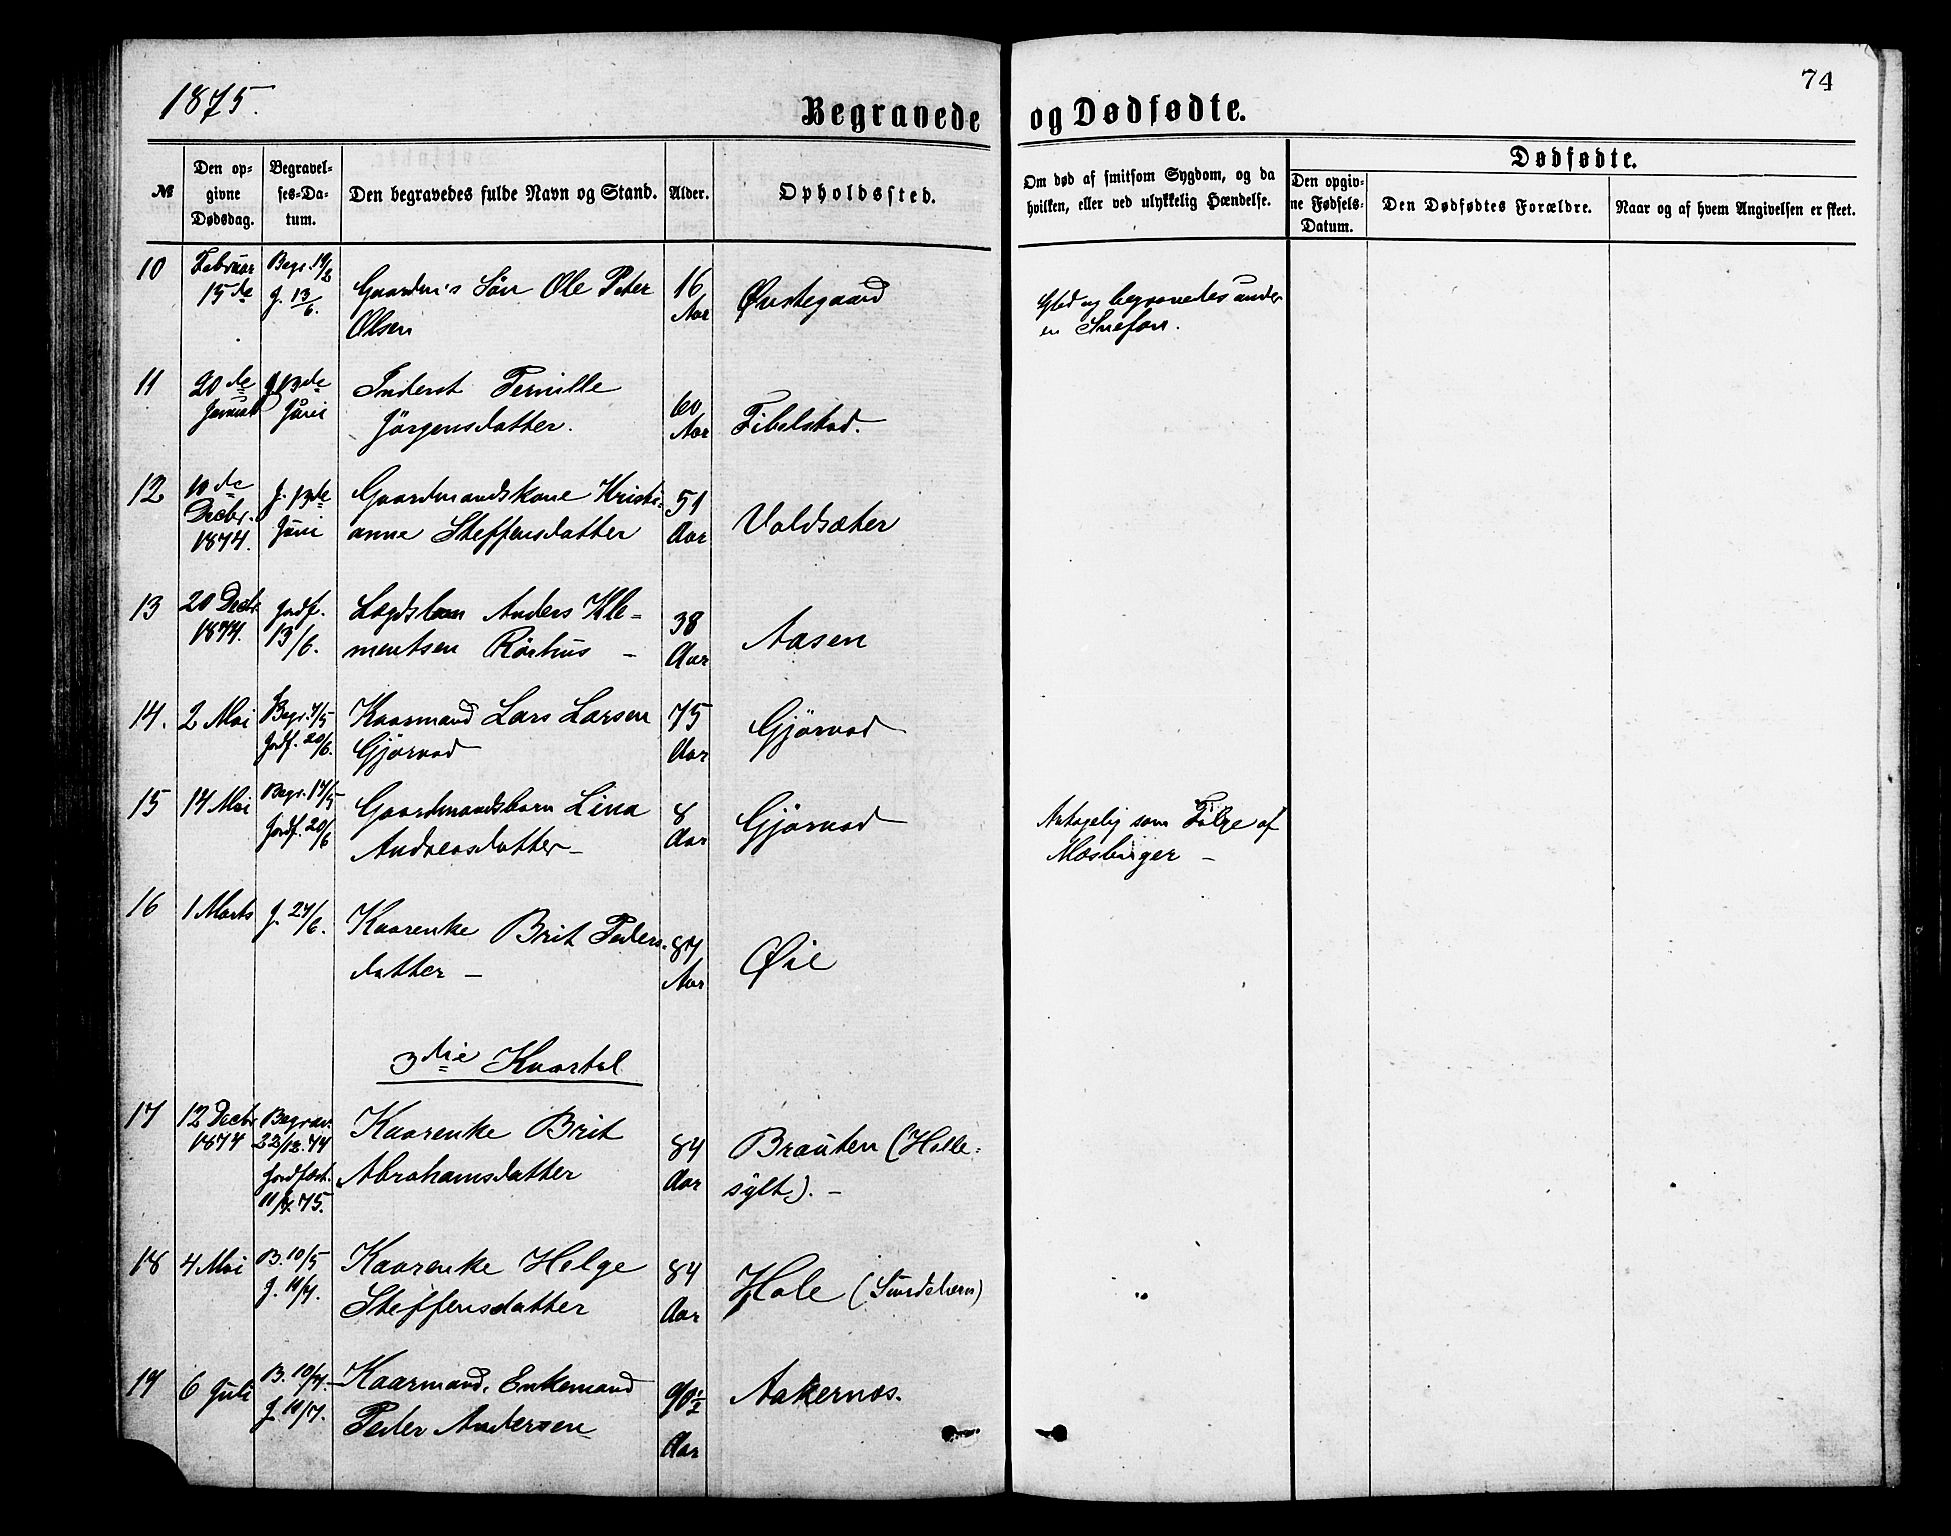 1875.
74
Begravede og Dødfødte.
№
Den opgivne Dødsdag.
Begravelses-Datum.
Den begravedes fulde Navn og Stand.
Alder.
Opholdssted.
Om død af smitsom Sygdom, og da
hvilken, eller ved ulykkelig Hændelse.
Dødfødte.
Den opgivne Fødsels-Datum.
Den Dødfødtes Forældre.
Naar og af hvem Angivelsen er skeet.
10 Februar 15de Begr. 19/2 J. 13/6. Gaardm's Søn Ole Peter 16 Aar
Olsen
og begravedes under
en
11 20de Januar J. 13de Juni Inderst Pernille 60 Aar Fibelstad.
Jørgensdatter.
12 10de Decbr. 1874. J. 13de Juni Gaardmandskone Kristi- 51 Aar Valdsæter
anne Steffensdatter
13 20 Decbr. 1874. Jordf. 13/6. Lægdslem Anders Kle- 38 Aar Aasen
mentsen Rørhus –
14. 2 Mai Begr. 7/5 Jordf. 20/6. Kaarmand Lars Larsen 75 Aar Gjørvad
Gjørvad
15 14 Mai Begr. 17/5 Jordf. 20/6 Gaardmandsbarn Lina 8 Aar Gjørvad
Andreasdatter –
Antagelig som Følge af
Mæslinger –
16 1 Marts J. 27/6. Kaarenke Brit Peders- 87 Aar Øie
datter –
3die Kvartal
17 12 Decbr 1874 Begrav. 22/12. 74 Jordfæst. 11/7. 75. Kaarenke Brit 84 Aar Brauten (Helle-
Abrahamsdatter
sylt). –
18 4 Mai B. 10/5 J. 11/7. Kaarenke Helge 84 Aar Hole
Steffensdatter
19 6 Juli B. 10/7. J. 11/7. Kaarmand, Enkemand 90 1/2 Aar Aakernes.
Peder Andersen